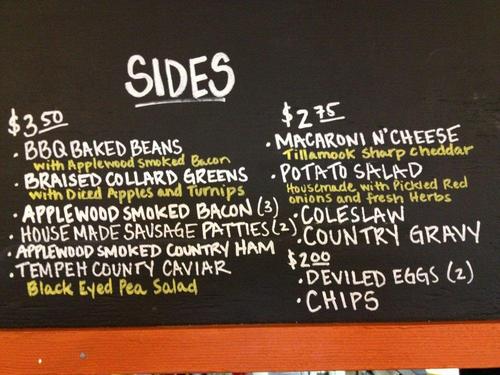 SIDES
$3.50
• BBQ BAKED BEANS
with Applewood smoked Bacon
• BRAISED COLLARD GREENS
with Diced Apples and Turnips
• APPLEWOOD SMOKED BACON (3)
• HOUSE MADE SAUSAGE PATTIES (2)
• APPLEWOOD SMOKED COUNTRY HAM
• TEMPEH COUNTY CAVIAR
Black Eyed Pea Salad
$2.75
• MACARONI N' CHEESE
Tillamook sharp cheddar
• POTATO SALAD
Housemade with Pickled Red
onions and fresh Herbs
• COLESLAW
• COUNTRY GRAVY
$2.00
• DEVILED EGGS (2)
• CHIPS